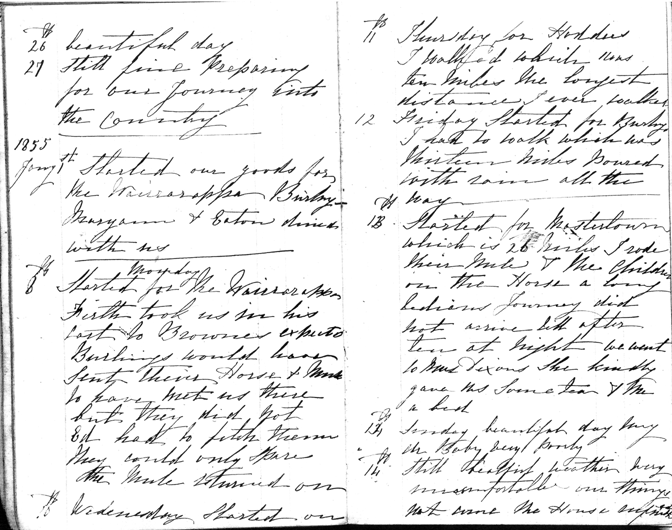 th
26 beautiful day
27 Still fine Preparing
for our Journey into
the Country
1855
Jany 1st Started our goods for
the Wairarappa Burling
Maryann & Eaton dined
with us
th Monday
8 Started for the Wairarappa
Firth took us in his
cart to Brownes expected
Burlings would have
sent their Horse & Mule
to have met us there
but they did not
Ed had to fetch them
they could only spare
the Mule returned on
th
Wednesday Started on
th
11 Thursday for Hodders
I walked which was
ten Miles the longest
distance I ever walked
12 Friday Started for Burling
I had to walk which was
thirteen Miles Poured
with rain all the
way
th
13 Started for Mastertown
which is 26 Miles I rode
their Mule & the Children
on the Horse a long
tedious Journey did
not arrive till after
ten at Night we went
to Dixons She kindly
gave us Some tea & the
a bed
th
13 Sunday beautiful day very
Baby very poorly
th
14 Still beautiful weather very
uncomfortable our things
not come the House